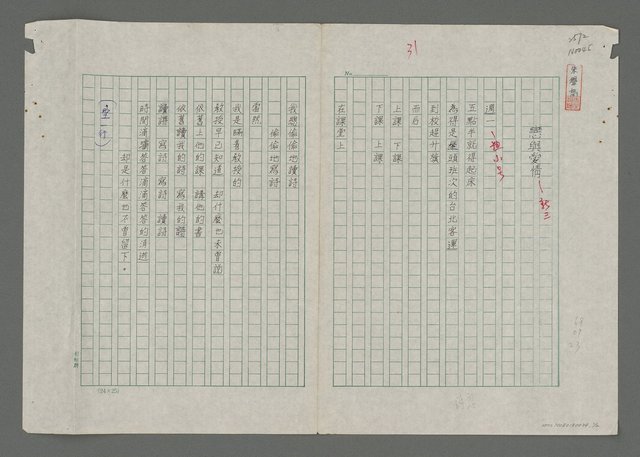 31
No.
戀與愛情
週一
五點半就得起床
為得是趕頭班次的台北客運
到校趕升旗
而后
上課 下課
下課 上課
在課堂上
我想偷偷地讀詩
偷偷地寫詩
當然
我是瞞著教授的
教授早已知道 却什麼也未曾說
依舊上他的課 講他的書
依舊讀我的詩 寫我的詩
讀詩 寫詩 寫詩 讀詩
時間滴滴答答滴滴答答的消逝
却是什麼也不曾留下。
(空一行)
(24×25)